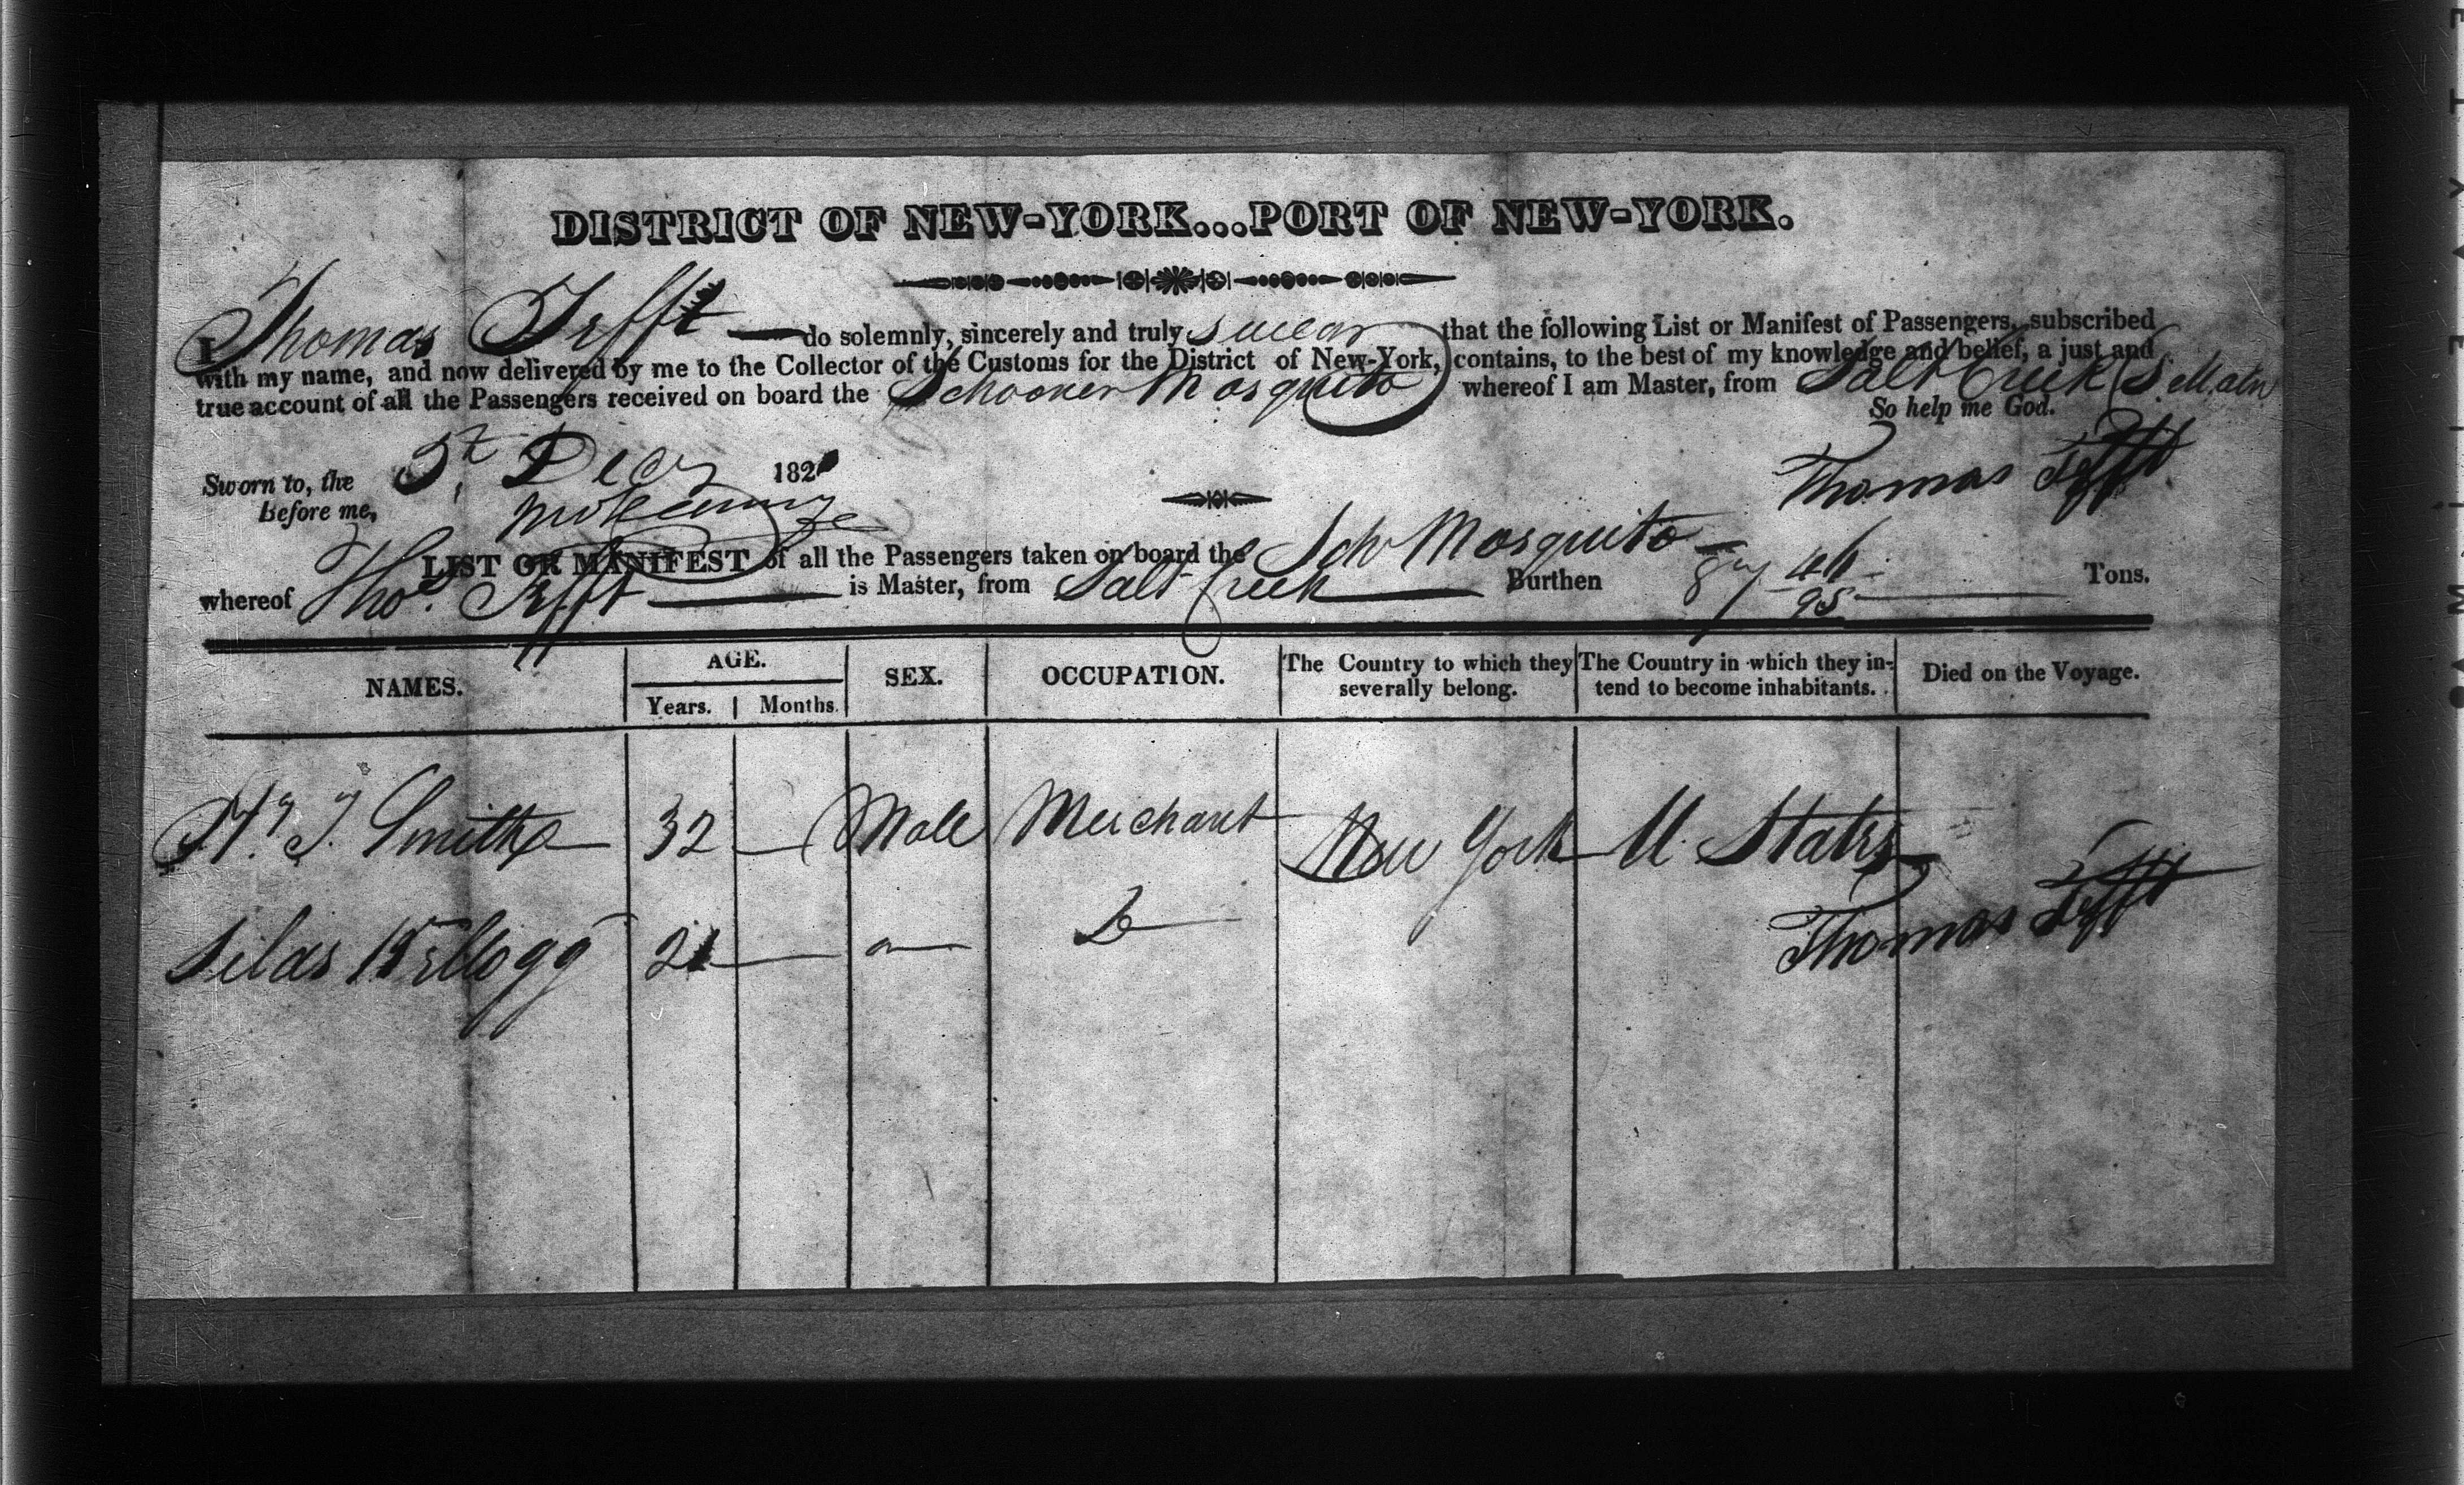 DISTRICT OF NEW-YORK...PORT OF NEW-YORK.
I Thomas Tefft — do solemnly, sincerely and truly swear that the following List or Manifest of Passengers, subscribed
with my name, and now delivered by me to the Collector of the Customs for the District of New-York, contains, to the best of my knowledge and belief, a just and
true account of all the Passengers received on board the Schooner Mosquito whereof I am Master, from Salt Creek (S. Main
So help me God.
Sworn to, the 5th Decr 182
Before me,
Thomas Tefft
LIST OR MANIFEST of all the Passengers taken on board the Schr Mosquito
whereof Thos. Tefft — is Master, from Salt Creek — Burthen 87 46/95 Tons.
NAMES. AGE. SEX. OCCUPATION. The Country to which they severally belong. The Country in which they intend to become inhabitants. Died on the Voyage.
Years. Months.
J. Smith 32 — Male Merchant New York U. States
Silas Kellogg 21 —
Thomas Tefft